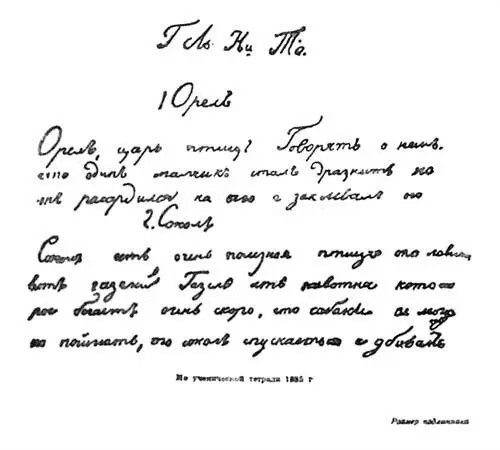 Г Ль. Ни То.
1 Орелъ
Орелъ, царь птицъ Говорятъ о немъ.
что одинъ мальчикъ сталъ дразнить
разсердился на него и заклевалъ его
2. Соколъ
Соколъ есть очень полезная птица она
газелей Газель есть
бегаетъ очень скоро, что собаки не могу
поймать, то соколъ спускается и убиваетъ
Из ученической тетради 1835 г
Размер подлинника